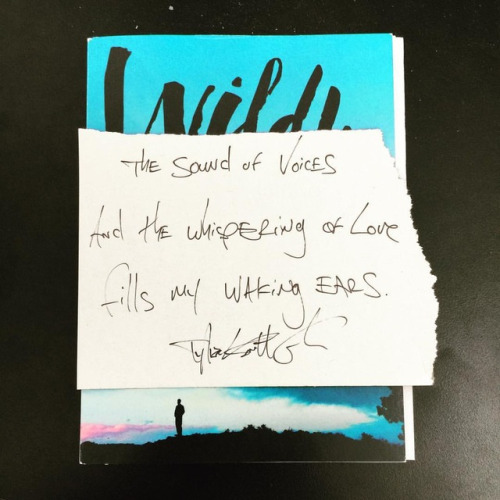 Wildly
THE SOUND OF VOICES
AND THE WHISPERING OF LOVE
fills MY WAKING EARS.
Tyler Knott G